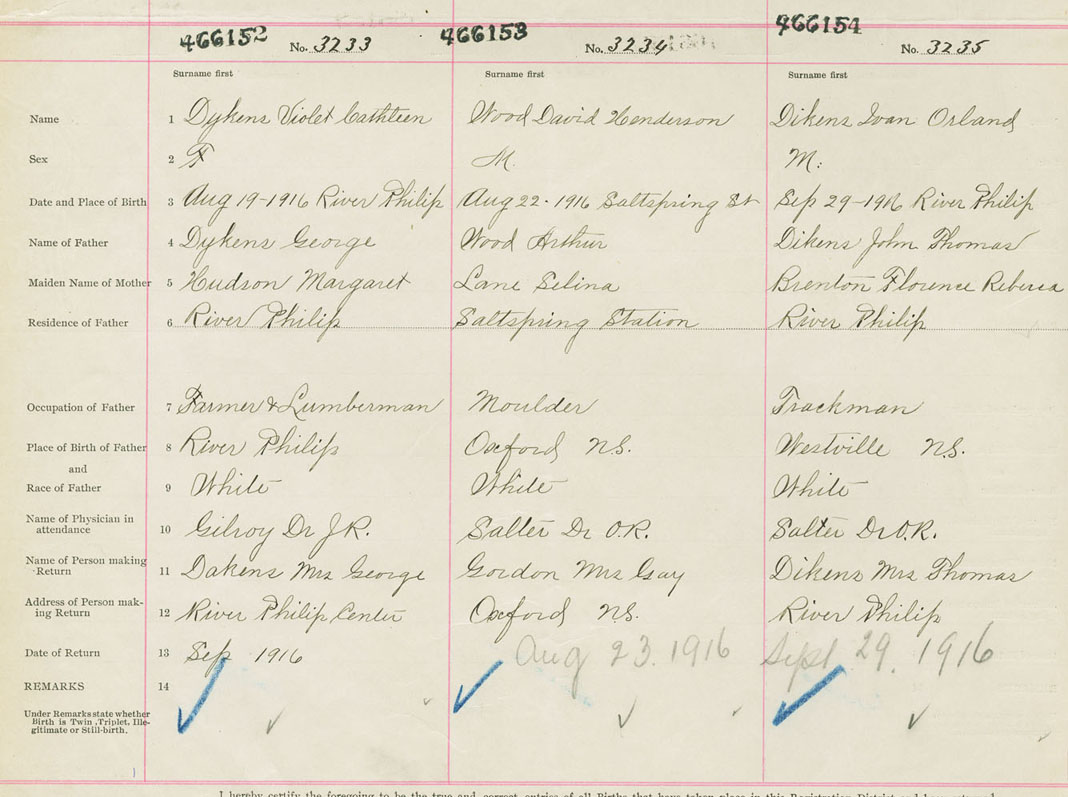 466152 No. 3233 466153 No. 3234 466154 No. 3235
Surname first Surname first Surname first
Name 1 Dykens Violet Cathleen Wood David Henderson Dikens Ivan Orland
Sex 2 F M. M.
Date and Place of Birth 3 Aug 19-1916 River Philip Aug 22-1916 Saltspring St Sep 29-1916 River Philip
Name of Father 4 Dykens George Wood Arthur Dikens John Thomas
Maiden Name of Mother 5 Hudson Margaret Lane Selina Brenton Florence Rebecca
Residence of Father 6 River Philip Saltspring Station River Philip
Occupation of Father 7 Farmer & Lumberman Moulder Trackman
Place of Birth of Father 8 River Philip Oxford N.S. Westville N.S.
and
Race of Father 9 White White White
Name of Physician in
attendance 10 Gilroy Dr J.R. Salter Dr O.R. Salter Dr O.R.
Name of Person making
Return 11 Dakens Mrs George Gordon Mrs Guy Dikens Mrs Thomas
Address of Person mak-
ing Return 12 River Philip Center Oxford N.S. River Philip
Date of Return 13 Sep 1916 Aug 23. 1916 Sept 29. 1916
REMARKS 14
Under Remarks state whether
Birth is Twin, Triplet, Ille-
gitimate or Still-birth.
I hereby certify the foregoing to be the true and correct entries of all Births that have taken place in this Registration District